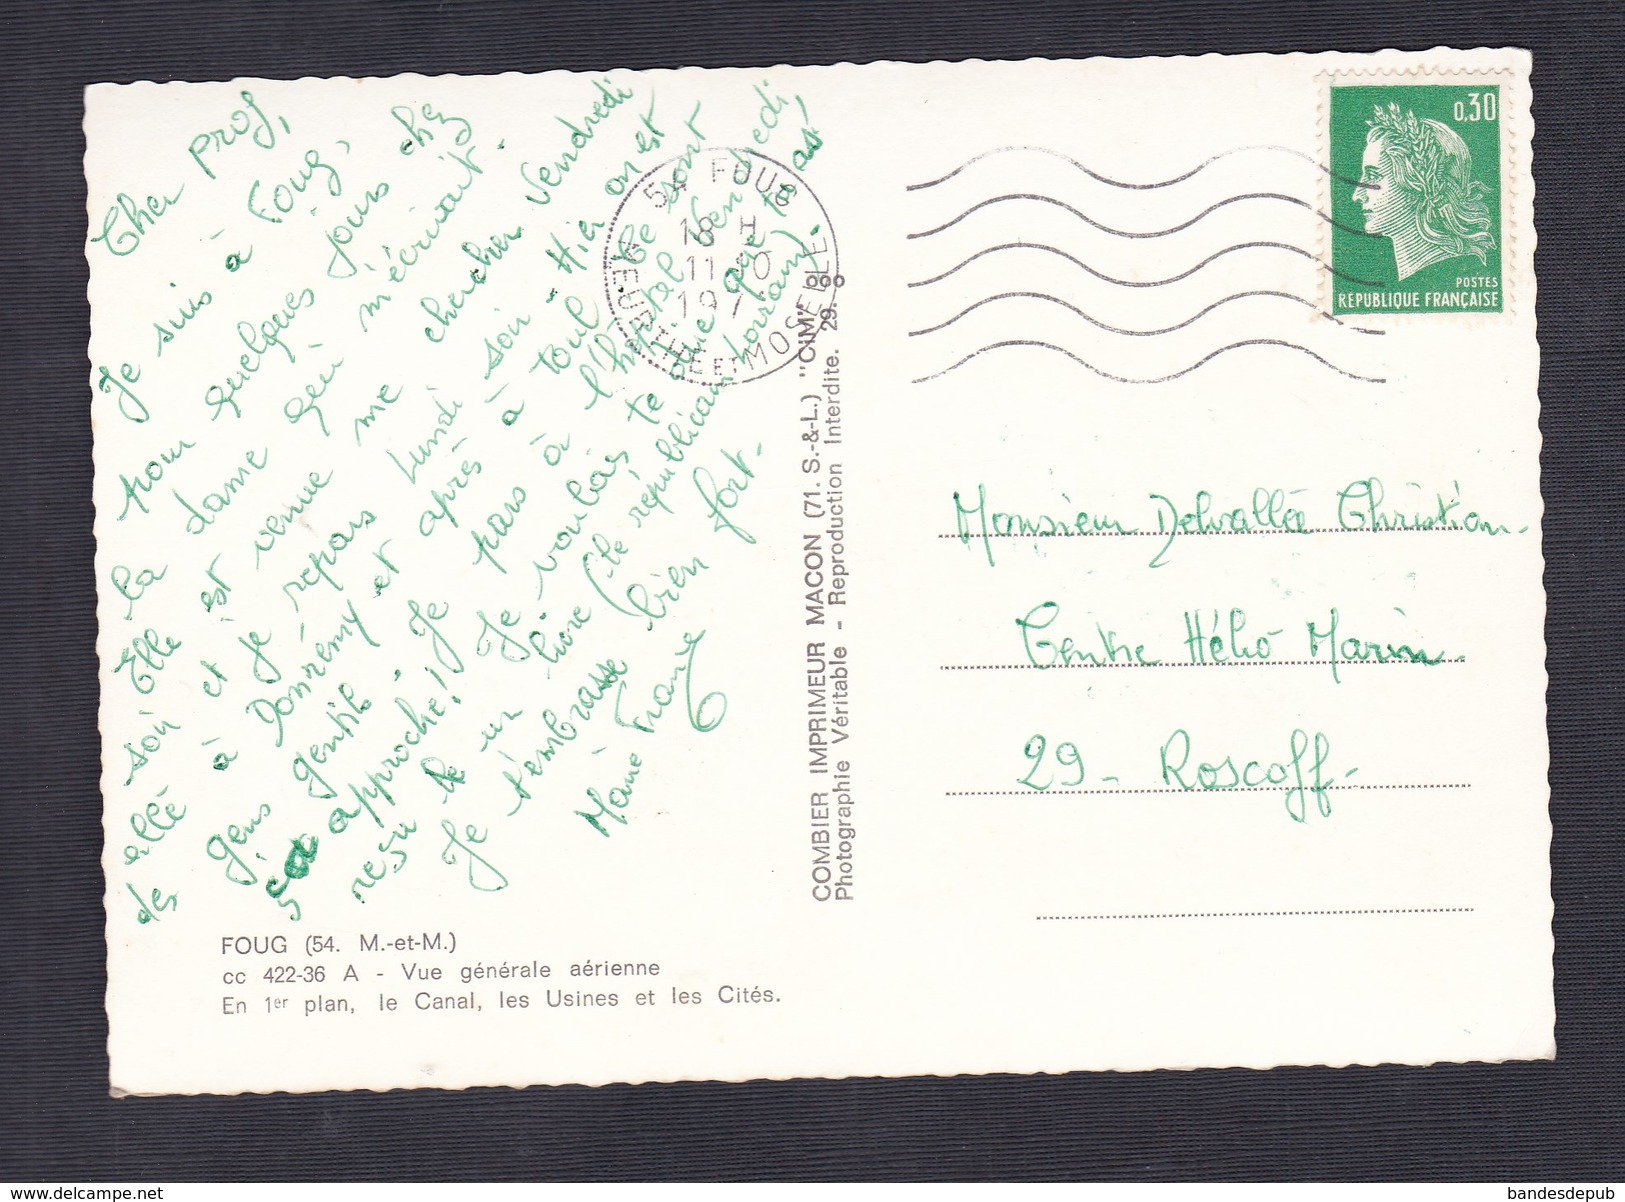 Cher prof,
Je suis à Foug, chez
pour quelques jours
la dame qui m'écrivait.
Elle est venue me chercher Vendredi
soir et je repars Lundi soir - Hier on est
allé à Domrémy et après à toul. Ce sont
des gens gentils. Je pars à l'hôtel Vendredi,
ça approche! Je voulais te dire que tu as
reçu le un livre (le républicain lorrain).
Je t'embrasse bien fort.
Marie France
54 FOUG
18 H
11
197
MEURTHE ET MOSELLE
0,30
POSTES
REPUBLIQUE FRANÇAISE
COMBIER IMPRIMEUR MACON (71. S.-&-L.) "CIM"
Photographie Véritable - Reproduction Interdite. 29.
Monsieur Delvallée Christian
Centre Hélio Marin
29 - Roscoff -
FOUG (54. M.-et-M.)
cc 422-36 A - Vue générale aérienne
En 1er plan, le Canal, les Usines et les Cités.
www.delcampe.net
bandesdepub